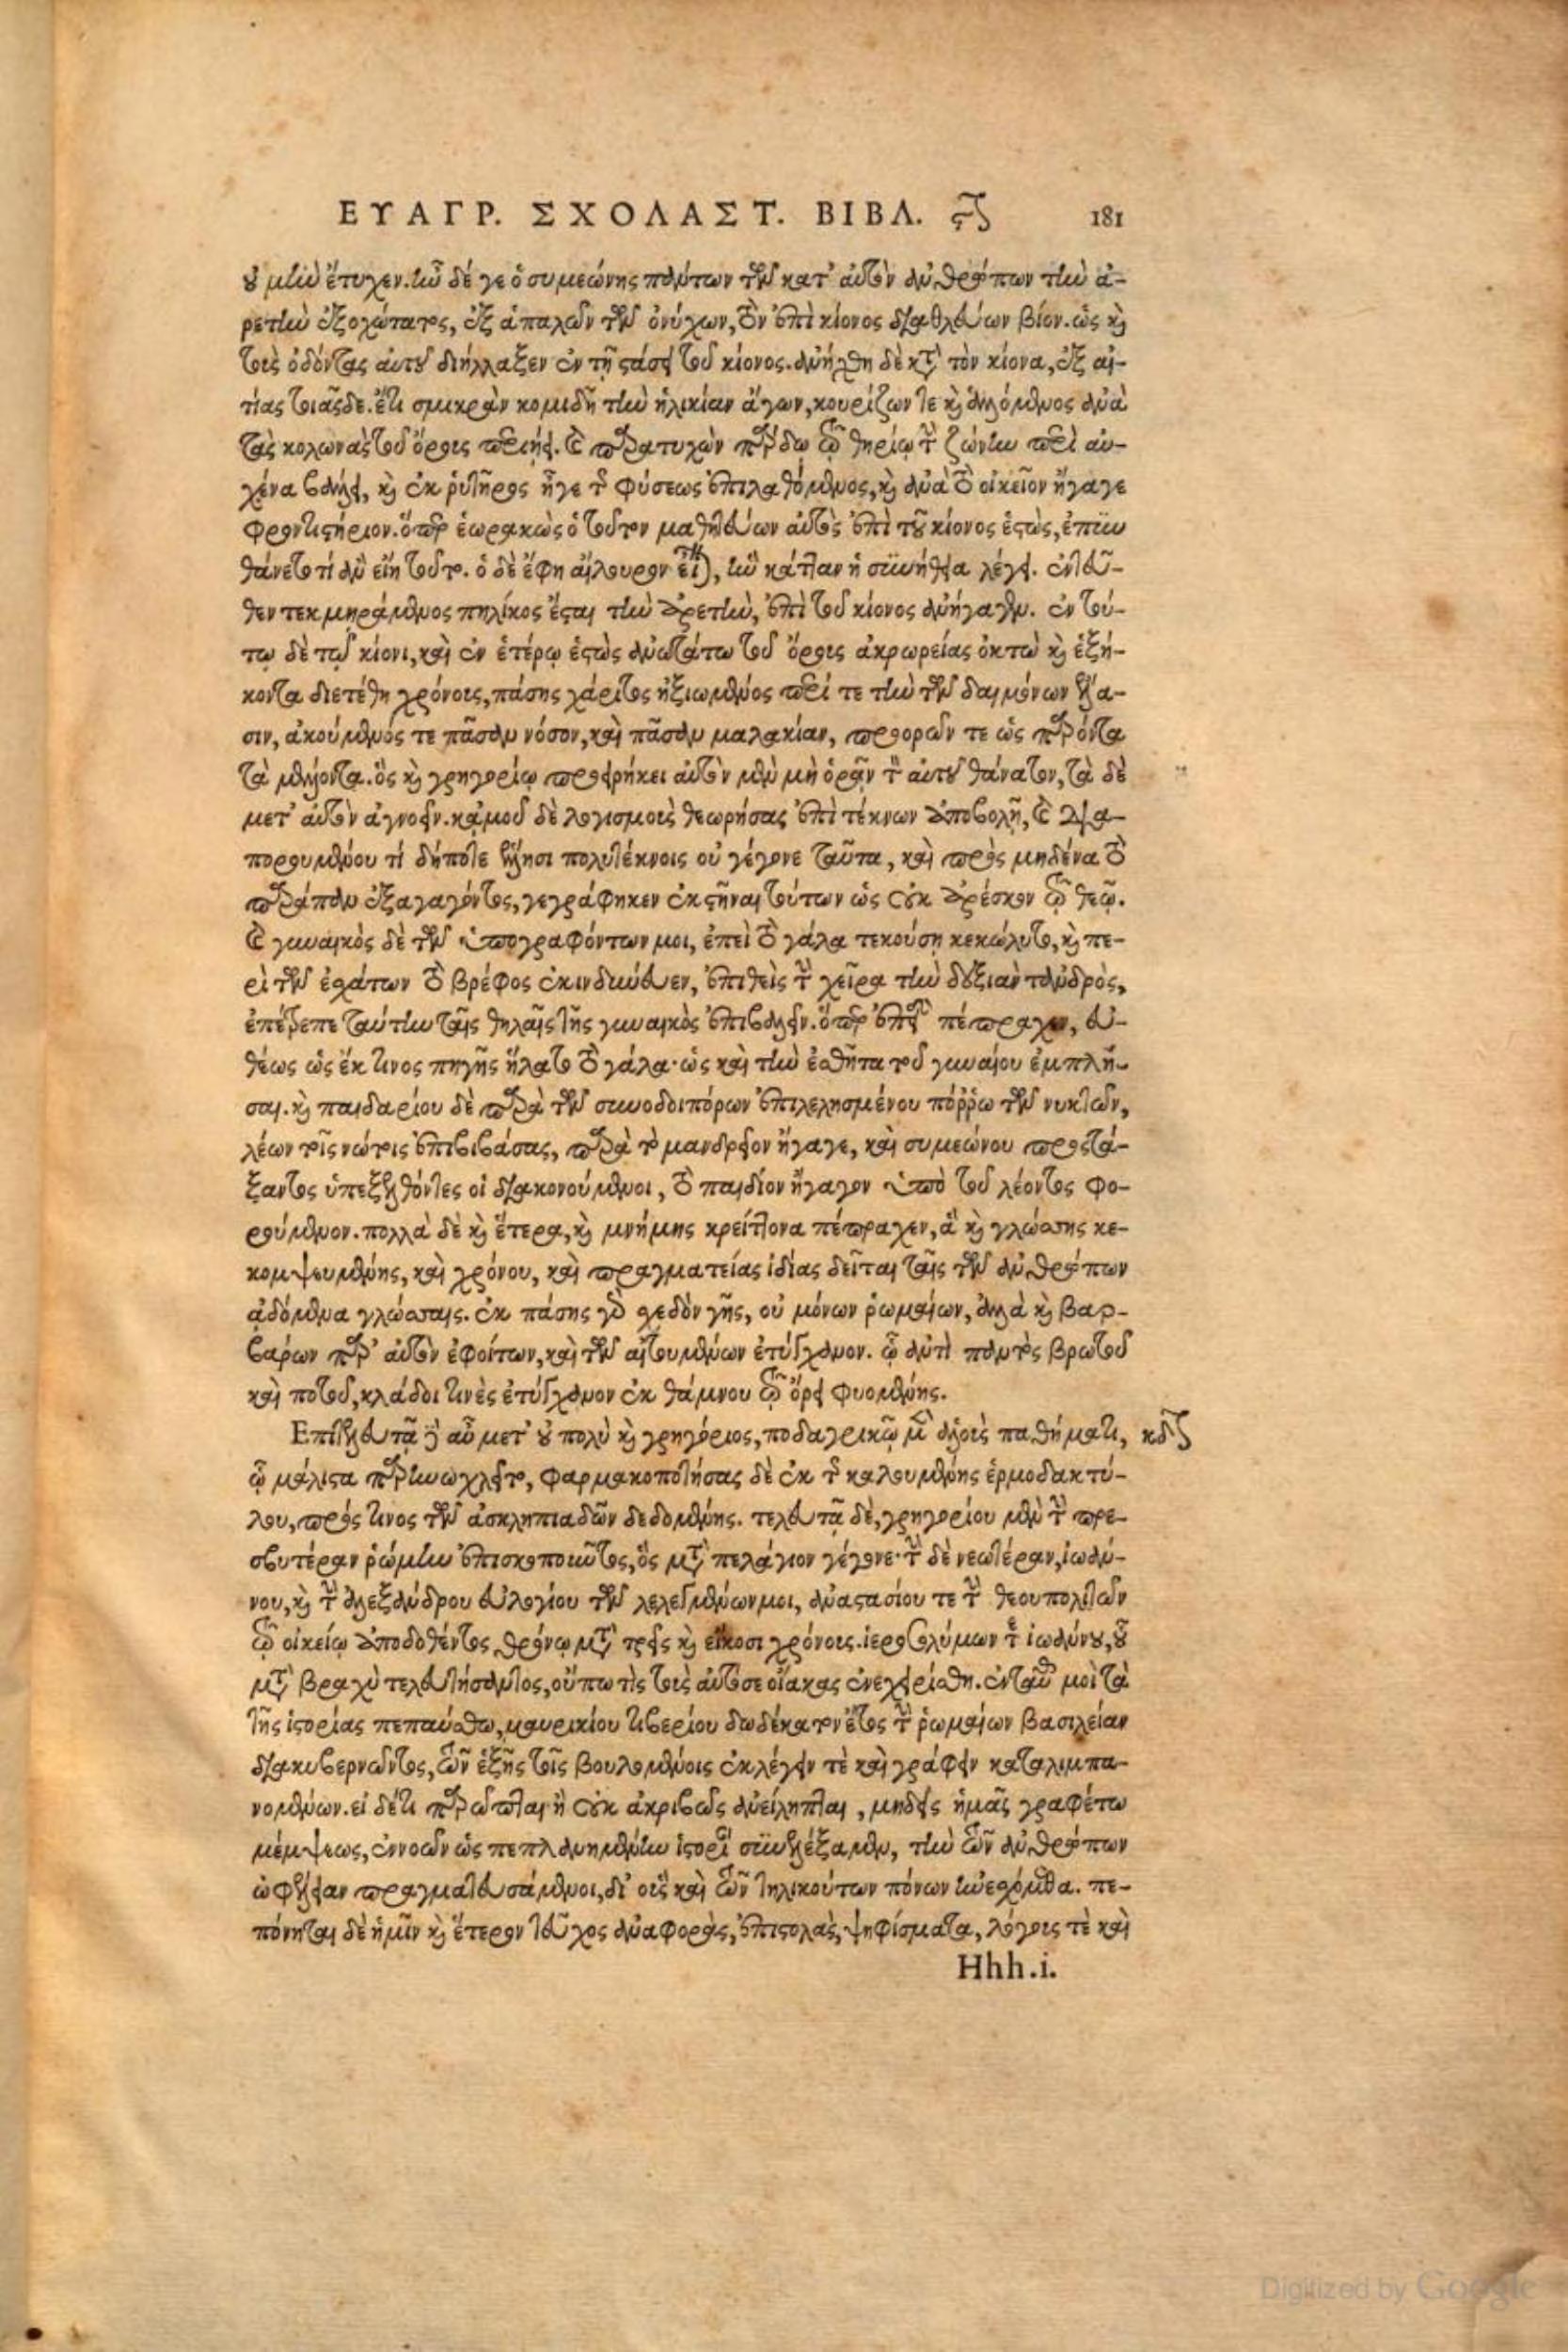 ΕΥΑΓΡ. ΣΧΟΛΑΣΤ. ΒΙΒΛ. ϛ 181
οὐ μὴν ἔτυχεν. ἦν δέ γε ὁ συμεώνης πάντων τῶν κατ' αὐτὸν ἀνθρώπων τὴν ἀ-
ρετὴν ἐξοχώτατος, ἐξ ἁπαλῶν τῶν ὀνύχων, τὸν ἐπὶ κίονος διαθλεύων βίον. ὡς καὶ
τοὺς ὀδόντας αὐτοῦ διήλλαξεν ἐν τῇ στάσει τοῦ κίονος. ἀνήχθη δὲ κατὰ τὸν κίονα, ἐξ αἰ-
τίας τοιᾶσδε. ἔτι σμικρὰν κομιδῆ τὴν ἡλικίαν ἄγων, κουρίζων τε καὶ ἁλλόμενος ἀνὰ
τὰς κολωνὰς τοῦ ὄρους περιῄει. καὶ παρατυχὼν παρδω τῷ θηρίῳ τὴν ζώνην περὶ αὐ-
χένα βάλλει, καὶ ἐκ ῥυτῆρος ἦγε τῆς φύσεως ἐπιλαθόμενος, καὶ ἀνὰ τὸ οἰκεῖον ἤγαγε
φροντιστήριον. ὅπερ ἑωρακὼς ὁ τοῦτον μαθητεύων αὐτὸς ἐπὶ τοῦ κίονος ἑστὼς, ἐπυν
θάνετο τί ἂν εἴη τοῦτο. ὁ δὲ ἔφη αἴλουρον εἶναι, ἣν κάτταν ἡ συνήθεια λέγει. ἐντεῦ-
θεν τεκμηράμενος πηλίκος ἔσται τὴν ἀρετὴν, ἐπὶ τοῦ κίονος ἀνήγαγεν. ἐν τού-
τῳ δὲ τῷ κίονι, καὶ ἐν ἑτέρῳ ἑστὼς ἀνωτάτω τοῦ ὄρους ἀκρωρείας ὀκτὼ καὶ ἑξή-
κοντα διετέθη χρόνοις, πάσης χάριτος ἠξιωμένος περί τε τὴν τῶν δαιμόνων ἔλα-
σιν, ἀκούμενός τε πᾶσαν νόσον, καὶ πᾶσαν μαλακίαν, προορῶν τε ὡς παρόντα
τὰ μέλλοντα. ὃς καὶ γρηγορίῳ προειρήκει αὐτὸν μὲν μὴ ὁρᾶν τὸν αὐτοῦ θάνατον, τὰ δὲ
μετ' αὐτὸν ἀγνοεῖν. κἀμοῦ δὲ λογισμοὺς θεωρήσας ἐπὶ τέκνων ἀποβολῇ, καὶ δια-
πορουμένου τί δήποτε ἕλλησι πολυτέκνοις οὐ γέγονε ταῦτα, καὶ πρὸς μηδένα τὸ
παράπαν ἐξαγαγόντος, γεγράφηκεν ἐκστῆναι τούτων ὡς οὐκ ἀρέσκον τῷ θεῷ.
καὶ γυναικὸς δὲ τῶν ὑπογραφόντων μοι, ἐπεὶ τὸ γάλα τεκούσῃ κεκώλυτο, καὶ πε-
ρὶ τῶν ἐσχάτων τὸ βρέφος ἐκινδύνευεν, ἐπιθεὶς τὴν χεῖρα τὴν δεξιὰν τἀνδρὸς,
ἐπέτρεπε ταύτην ταῖς θηλαῖς τῆς γυναικὸς ἐπιβαλεῖν. ὅπερ ἐπεὶ πέπραχεν, εὐ-
θέως ὡς ἔκ τινος πηγῆς ἥλατο τὸ γάλα· ὡς καὶ τὴν ἐσθῆτα τοῦ γυναίου ἐμπλῆ-
σαι. καὶ παιδαρίου δὲ παρὰ τῶν συνοδοιπόρων ἐπιλελησμένου πόῤῥω τῶν νυκτῶν,
λέων τοῖς νώτοις ἐπιβιβάσας, παρὰ τὸ μανδρεῖον ἤγαγε, καὶ συμεώνου προστά-
ξαντος ὑπεξελθόντες οἱ διακονούμενοι, τὸ παιδίον ἤγαγον ὑπὸ τοῦ λέοντος φο-
ρούμενον. πολλὰ δὲ καὶ ἕτερα, καὶ μνήμης κρείττονα πέπραχεν, ἃ καὶ γλώσσης κε-
κομψευμένης, καὶ χρόνου, καὶ πραγματείας ἰδίας δεῖται ταῖς τῶν ἀνθρώπων
ᾀδόμενα γλώσσαις. ἐκ πάσης γὰρ σχεδὸν γῆς, οὐ μόνων ῥωμαίων, ἀλλὰ καὶ βαρ-
βάρων παρ' αὐτὸν ἐφοίτων, καὶ τῶν αἰτουμένων ἐτύγχανον. ᾧ ἀντὶ παντὸς βρωτοῦ
καὶ ποτοῦ, κλάδοι τινὲς ἐτύγχανον ἐκ θάμνου τῷ ὄρει φυομένης.
Επιτελευτᾷ γ' αὖ μετ' οὐ πολὺ καὶ γρηγόριος, ποδαγρικῷ μὲν ἁλοὺς παθήματι, κδ
ᾧ μάλιστα παρηνωχλεῖτο, φαρμακοποτήσας δὲ ἐκ τῆς καλουμένης ἑρμοδακτύ-
λου, πρός τινος τῶν ἀσκληπιαδῶν δεδομένης. τελευτᾷ δὲ, γρηγορίου μὲν τὴν πρε-
σβυτέραν ῥώμην ἐπισκοποῦντος, ὃς μετὰ πελάγιον γέγονε· τὴν δὲ νεωτέραν, ἰωάν-
νου, καὶ τὴν ἀλεξάνδρου εὐλογίου τῶν λελεγμένων μοι, ἀναστασίου τε τὴν θεουπολιτῶν
τῷ οἰκείῳ ἀποδοθέντος θρόνῳ μετὰ τρεῖς καὶ εἴκοσι χρόνοις. ἱεροσολύμων τε ἰωάννου, οὗ
μετὰ βραχὺ τελευτήσαντος, οὔπω τις τοὺς αὐτόσε οἴακας ἐνεχειρίσθη. ἐνταῦθα μοὶ τὰ
τῆς ἱστορίας πεπαύσθω, μαυρικίου τιβερίου δωδέκατον ἔτος τὴν ῥωμαίων βασιλείαν
διακυβερνῶντος, τῶν ἑξῆς τοῖς βουλομένοις ἐκλέγειν τὲ καὶ γράφειν καταλιμπα-
νομένων. εἰ δέ τι παρῶπται ἢ οὐκ ἀκριβῶς ἀνείληπται, μηδεὶς ἡμᾶς γραφέτω
μέμψεως, ἐννοῶν ὡς πεπλανημένην ἱστορίαν συνελέξαμεν, τὴν τῶν ἀνθρώπων
ὠφέλειαν πραγματευσάμενοι, δι' οὓς καὶ τῶν τηλικούτων πόνων ἠνεσχόμεθα. πε-
πόνηται δὲ ἡμῖν καὶ ἕτερον τεῦχος ἀναφορὰς, ἐπιστολὰς, ψηφίσματα, λόγους τὲ καὶ
Hhh.i.
Digitized by Google